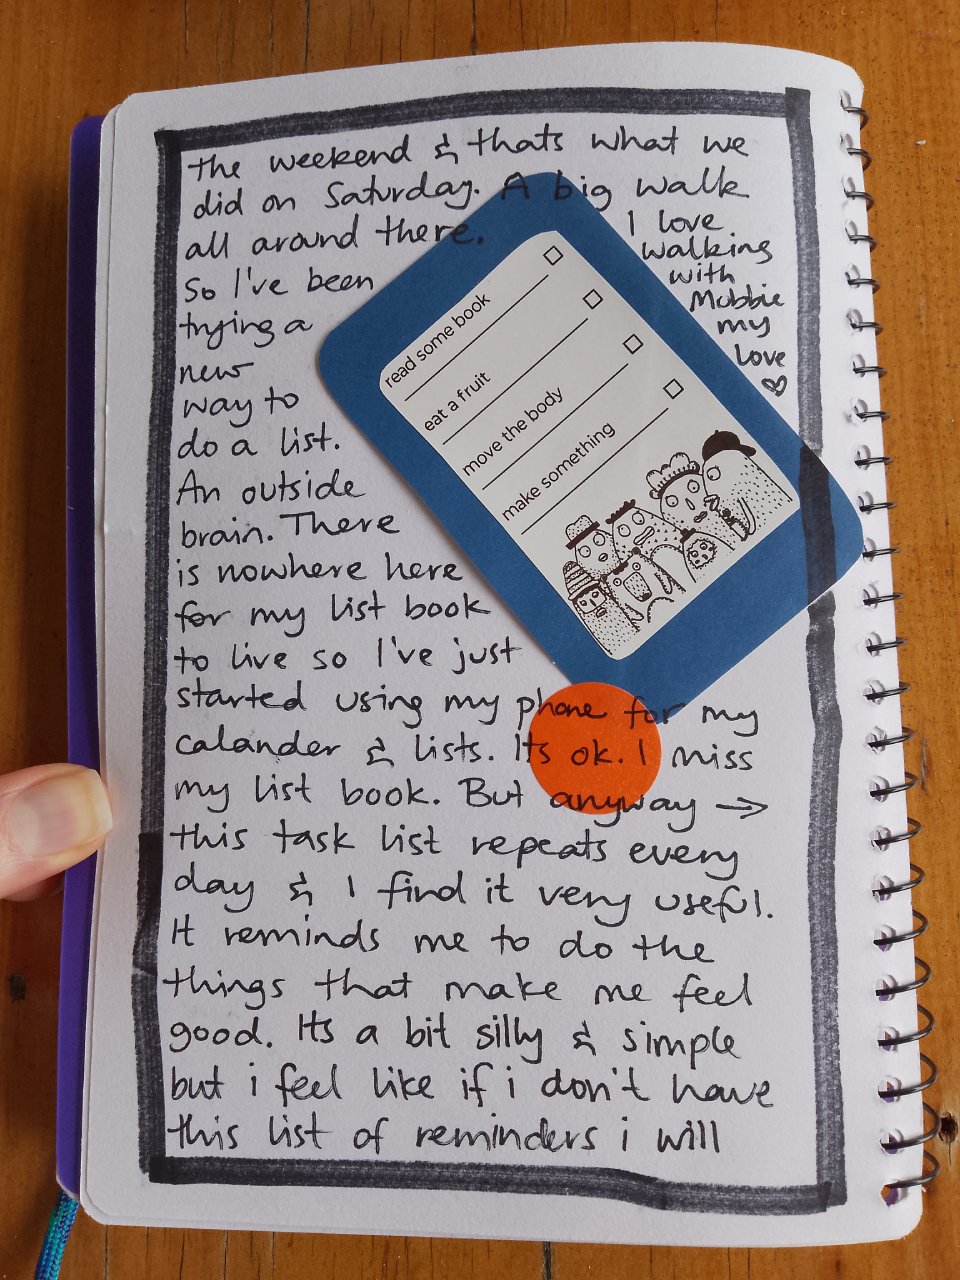 the weekend & thats what we
did on Saturday. A big walk
all around there.
I love
walking
with
Mubbie
my
love
♡
So I've been
trying a
new
way to
do a list.
An outside
brain. There
is nowhere here
for my list book
to live so I've just
started using my phone for my
calander & lists. Its ok. I miss
my list book. But anyway →
this task list repeats every
day & I find it very useful.
It reminds me to do the
things that make me feel
good. Its a bit silly & simple
but i feel like if i don't have
this list of reminders i will
read some book
eat a fruit
move the body
make something